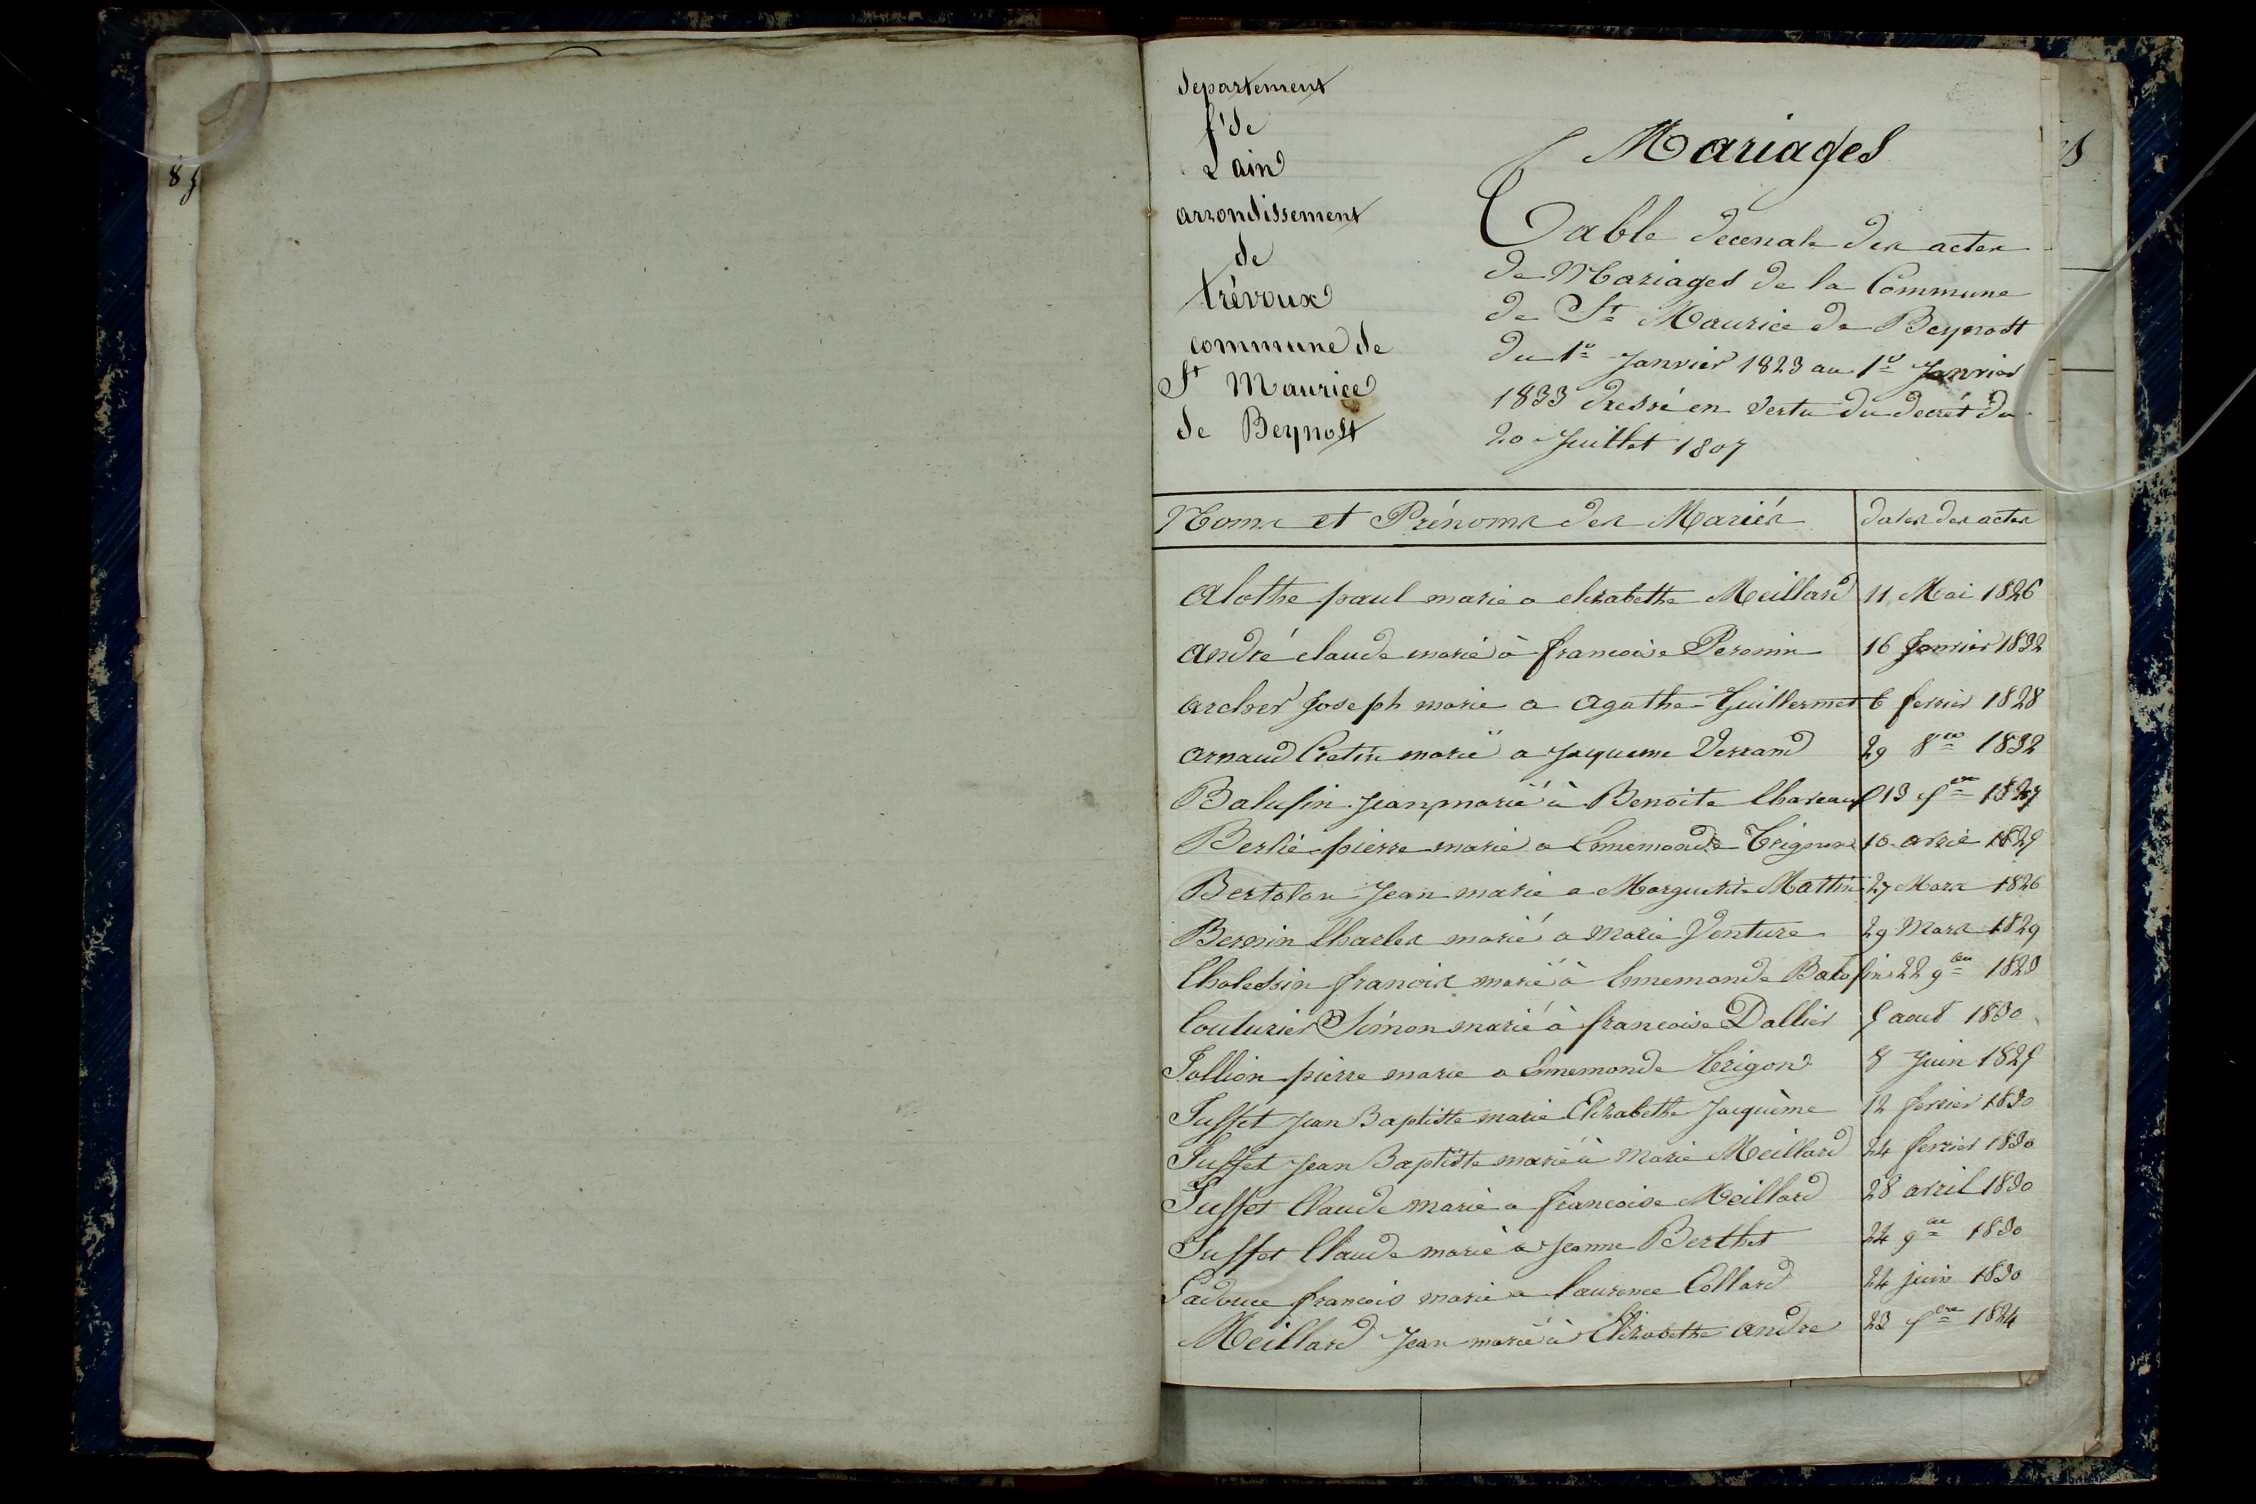 departement
de
Lain
arrondissement
de
trévoux
commune de
St Maurice
de Beynost
Mariages
Table decenale des actes
de Mariages de la Commune
de St Maurice de Beynost
du 1er Janvier 1823 au 1er Janvier
1833 dressé en vertu du decrét du
20 Juillet 1807
Noms et Prénoms des Mariés dates des actes
alothe paul marie a elizabethe Meillard 11 Mai 1826
andré claude marié à francoise Peronin 16 Janvier 1832
archer Joseph marie a agathe Guillermet 6 fevrier 1828
arnaud Cretin marié a Jacqueme Verrand 29 8bre 1832
Balufin Jean marié à Benoite 13 1827
Berlie pierre marie a Ennemonde Trigon 10 avril 1827
Bertolon Jean marie a Marguerite Martin 27 Mars 1826
Bernin Charles marié a Marie Venture 29 Mars 1829
Cholessin francois marié à Ennemonde Balofin 22 9bre 1823
Couturier Simon marié à francoise Dallier 5 aout 1830
Jollion pierre marie a Ennemonde Trigon 8 Juin 1825
Juffet Jean Baptiste marie Elizabethe Jacquème 12 fevrier 1830
Juffet Jean Baptiste marié à Marie Meillard 24 fevrier 1830
Juffet Claude marié a francoise Meillard 28 avril 1830
Juffet Claude marié a Jeanne Berthet 24 9bre 1830
Ladouce francois marié a laurence Collard 24 juin 1830
Meillard Jean marié à Elizabethe andre 23 1824